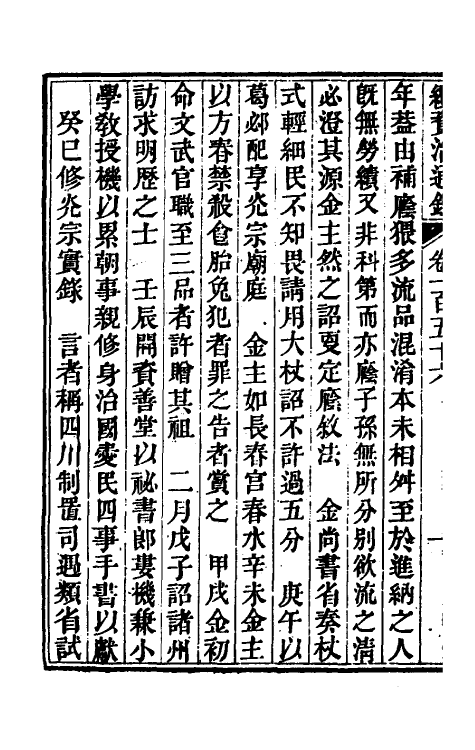 續資治通鑑 卷一百五十六
年葢由補廕猥多流品混淆本末相舛至於進納之人
旣無勞績又非科第而亦廕子孫無所分別欲流之清
必澄其源金主然之詔更定廕敘法 金尚書省奏杖
式輕細民不知畏請用大杖詔不許過五分 庚午以
葛邲配享光宗廟庭 金主如長春宮春水辛未金主
以方春禁殺含胎兔犯者罪之告者賞之 甲戌金初
命文武官職至三品者許贈其祖 二月戊子詔諸州
訪求明歷之士 壬辰開資善堂以祕書郎婁機兼小
學敎授機以累朝事親修身治國愛民四事手書以獻
癸巳修光宗實錄 言者稱四川制置司遇類省試